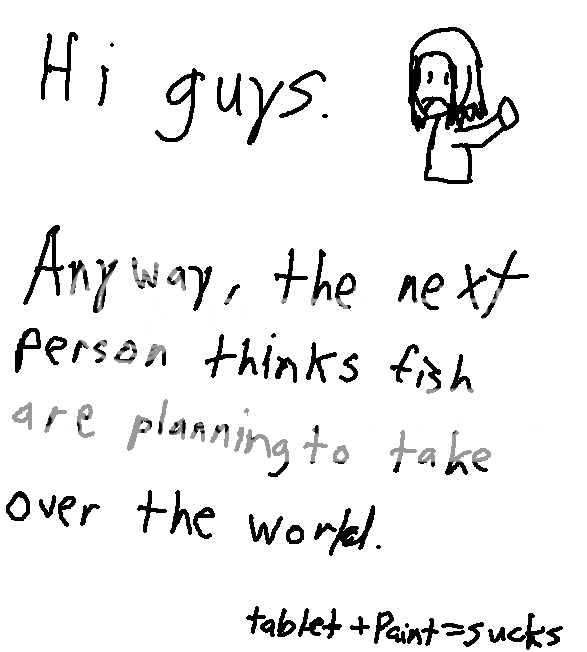 Hi guys.
Anyway, the next
person thinks fish
are planning to take
over the world.
tablet + Paint = sucks